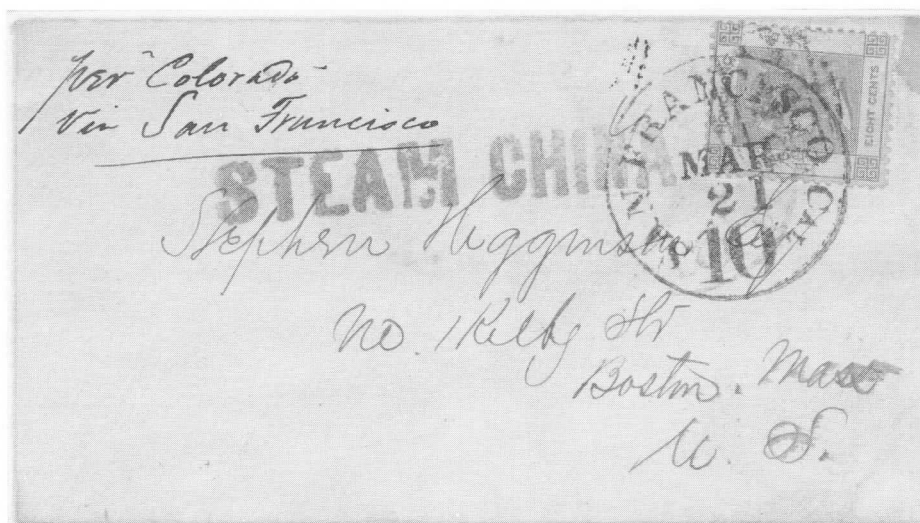 per Colorado
Via San Francisco
STEAM CHINA
SAN FRANCISCO CAL
MAR
21
10
EIGHT CENTS
Stephen Higginson
No. 1 Kilby Str
Boston. Mass
U. S.